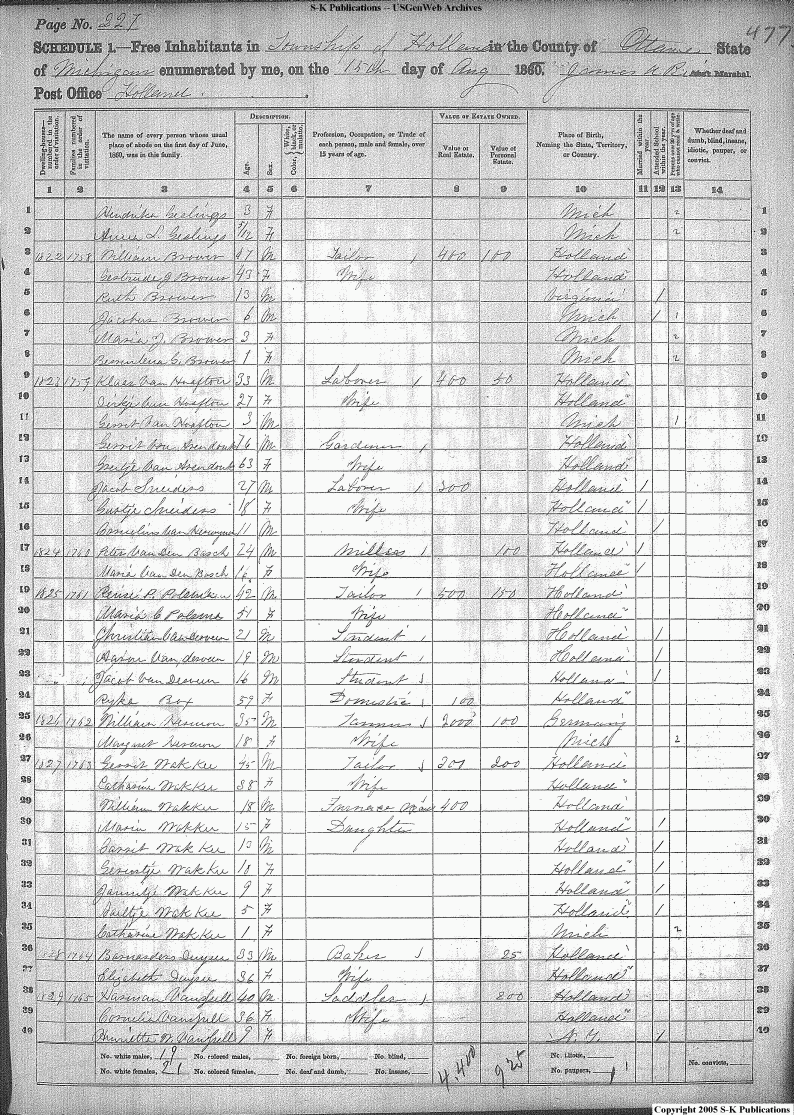 S-K Publications -- USGenWeb Archives
Page No. 227
477
SCHEDULE 1.—Free Inhabitants in Township of Holland in the County of Ottawa State
of Michigan enumerated by me, on the 15th day of Aug 1860. James Ass't Marshal.
Post Office Holland
Dwelling-houses—numbered in the order of visitation.
Families numbered in the order of visitation.
The name of every person whose usual place of abode on the first day of June, 1860, was in this family.
DESCRIPTION.
Age.
Sex.
Color, White, black, or mulatto.
Profession, Occupation, or Trade of each person, male and female, over 15 years of age.
VALUE OF ESTATE OWNED.
Value of Real Estate.
Value of Personal Estate.
Place of Birth, Naming the State, Territory, or Country.
Married within the year.
Attended School within the year.
Persons over 20 y'rs of age who cannot read & write.
Whether deaf and dumb, blind, insane, idiotic, pauper, or convict.
1 2 3 4 5 6 7 8 9 10 11 12 13 14
1 Hendrika Geelings 3 F Mich 2 1
2 Anna L Geelings 5/12 F Mich 2 2
3 1822 1758 William Brower 47 M Tailor 1 400 100 Holland 3
4 Geertrude J Brower 43 F Wife Holland 4
5 Ruth Brower 13 M Virginia 1 5
6 Jacobus Brower 6 M Mich 1 1 6
7 Maria J. Brower 3 F Mich 2 7
8 C. Brower 1 F Mich 2 8
9 1823 1759 Klaas Van Haaften 33 M Laborer 1 400 50 Holland 9
10 Van Haaften 27 F Wife Holland 10
11 Gerrit Van Haaften 3 M Mich 1 11
12 Gerrit Van Arendonk 76 M Gardener 1 Holland 12
13 Geertje Van Arendonk 63 F Wife Holland 13
14 Jacob Sneiders 27 M Laborer 1 200 Holland 1 14
15 Sneiders 18 F Wife Holland 1 15
16 Cornelius Van 11 M Holland 1 16
17 1824 1760 Peter Van Den Bosch 24 M Miller 1 100 Holland 1 17
18 Maria Van Den Bosch F Wife Holland 1 18
19 1825 1761 P. 42 M Tailor 1 500 150 Holland 19
20 Maria C 51 F Wife Holland 20
21 Christian Vanderveen 21 M Student 1 Holland 1 21
22 Aaron Vanderveen 19 M Student 1 Holland 1 22
23 Jacob Van Derveen 16 M Student 1 Holland 1 23
24 Ryka Box 59 F Domestic 1 100 Holland 24
25 1826 1762 William 35 M Tanner 1 2000 100 Germany 25
26 Margaret 18 F Wife Mich 2 26
27 1827 1763 Gerrit Wakker 45 M Tailor 1 200 200 Holland 27
28 Catharine Wakker 38 F Wife Holland 28
29 William Wakker 18 M Furnace Man 400 Holland 29
30 Maria Wakker 15 F Daughter Holland 1 30
31 Garrit Wakker 13 M Holland 1 31
32 Wakker 10 F Holland 1 32
33 Jannitje Wakker 9 F Holland 1 33
34 Wakker 5 F Holland 1 34
35 Catharine Wakker 1 F Mich 2 35
36 1828 1764 33 M Baker 1 25 Holland 36
37 Elizabeth 36 F Wife Holland 37
38 1829 1765 Harman 40 M Saddler 1 200 Holland 38
39 Cornelia 36 F Wife Holland 39
40 Henriette W. 9 F N.Y. 1 40
No. white males, 19 No. colored males, No. foreign born, No. blind, 4,400 925 No. idiotic, No. convicts,
No. white females, 21 No. colored females, No. deaf and dumb, No. insane, No. paupers, 1
Copyright 2005 S-K Publications